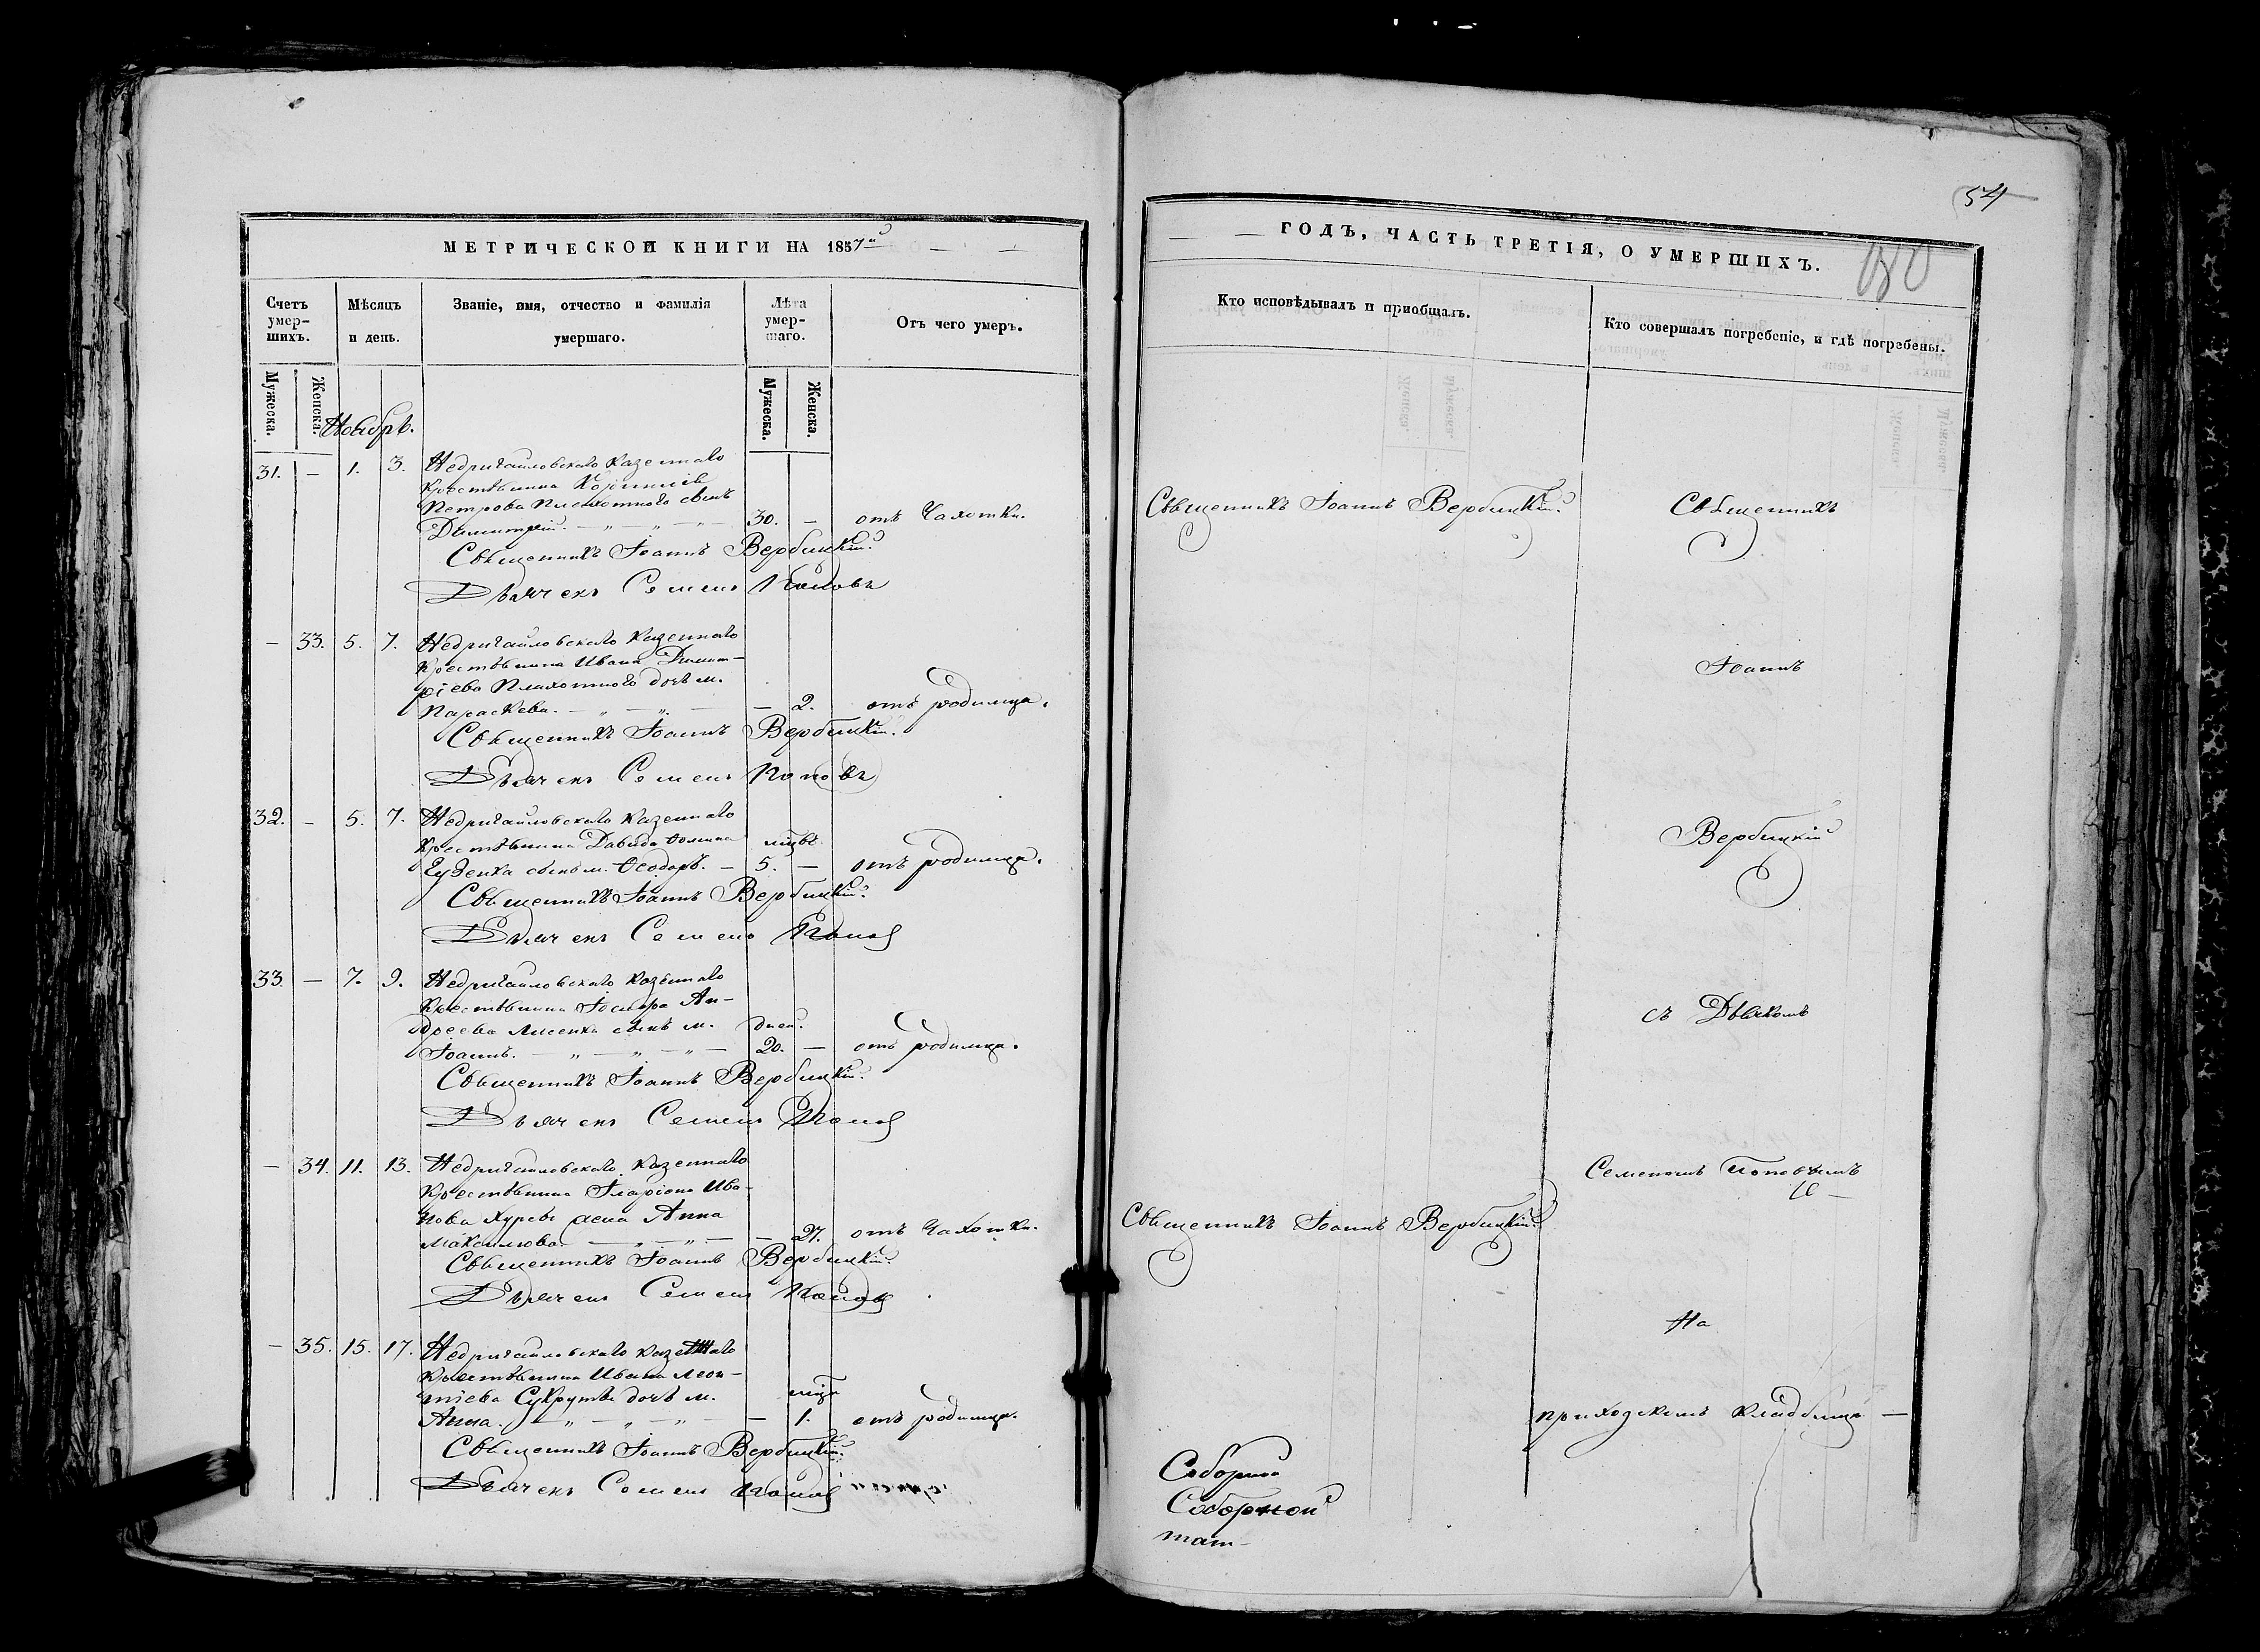 МЕТРИЧЕСКОЙ КНИГИ НА 1857й
Счетъ умер-шихъ.
Мѣсяцъ и день.
Званіе, имя, отчество и фамилія умершаго.
Лѣта умер-шаго.
Отъ чего умеръ.
Мужеска.
Женска.
Мужеска.
Женска.
Ноябрь.
31. — 1. 3. Недригайловскаго Казеннаго
Крестьянина Корнилія
Петрова Плахотнаго сынъ
Димитрій. — „ — „ — 30. — отъ Чахотки.
Священникъ Іоаннъ Вербицкій.
Дьячекъ Семенъ Поповъ
— 33. 5. 7. Недригайловскаго Казеннаго
Крестьянина Ивана Димит-
ріева Плахотнаго дочь м.
Параскева. — „ — „ — — 2. отъ родимца.
Священникъ Іоаннъ Вербицкій.
Дьячекъ Семенъ Поповъ
32. — 5. 7. Недригайловскаго Казеннаго
Крестьянина Давида Фомина мцъ
сынъ м. Ѳеодоръ. — 5. — отъ родимца.
Священникъ Іоаннъ Вербицкій.
Дьячекъ Семенъ Попов
33. — 7. 9. Недригайловскаго Казеннаго
Крестьянина Ан-
дреева Лисенка сынъ м. дней.
Іоаннъ. — „ — „ — „ — 20. — отъ родимца.
Священникъ Іоаннъ Вербицкій.
Дьячекъ Семенъ Попов
— 34. 11. 13. Недригайловскаго Казеннаго
Крестьянина Іларіона Ива-
нова жена Анна
Максимова. — „ — „ — — 27. отъ Чахотки.
Священникъ Іоаннъ Вербицкій.
Дьячекъ Семенъ Попов
— 35. 15. 17. Недригайловскаго Казеннаго
Крестьянина Ивана Леон-
тіева дочь м. мцъ
Анна. — „ — „ — „ — — 1. отъ родимца.
Священникъ Іоаннъ Вербицкій.
Дьячекъ Семенъ Попов
54
ГОДЪ, ЧАСТЬ ТРЕТІЯ, О УМЕРШИХЪ.
Кто исповѣдывалъ и пріобщалъ.
Кто совершалъ погребеніе, и гдѣ погребены.
Священникъ Іоаннъ Вербицкій.
Священникъ
Іоаннъ
Вербицкій
съ Дьячкомъ
Семеномъ Поповымъ
Священникъ Іоаннъ Вербицкій.
На
приходскомъ кладбищѣ —
Соборно
Соборной